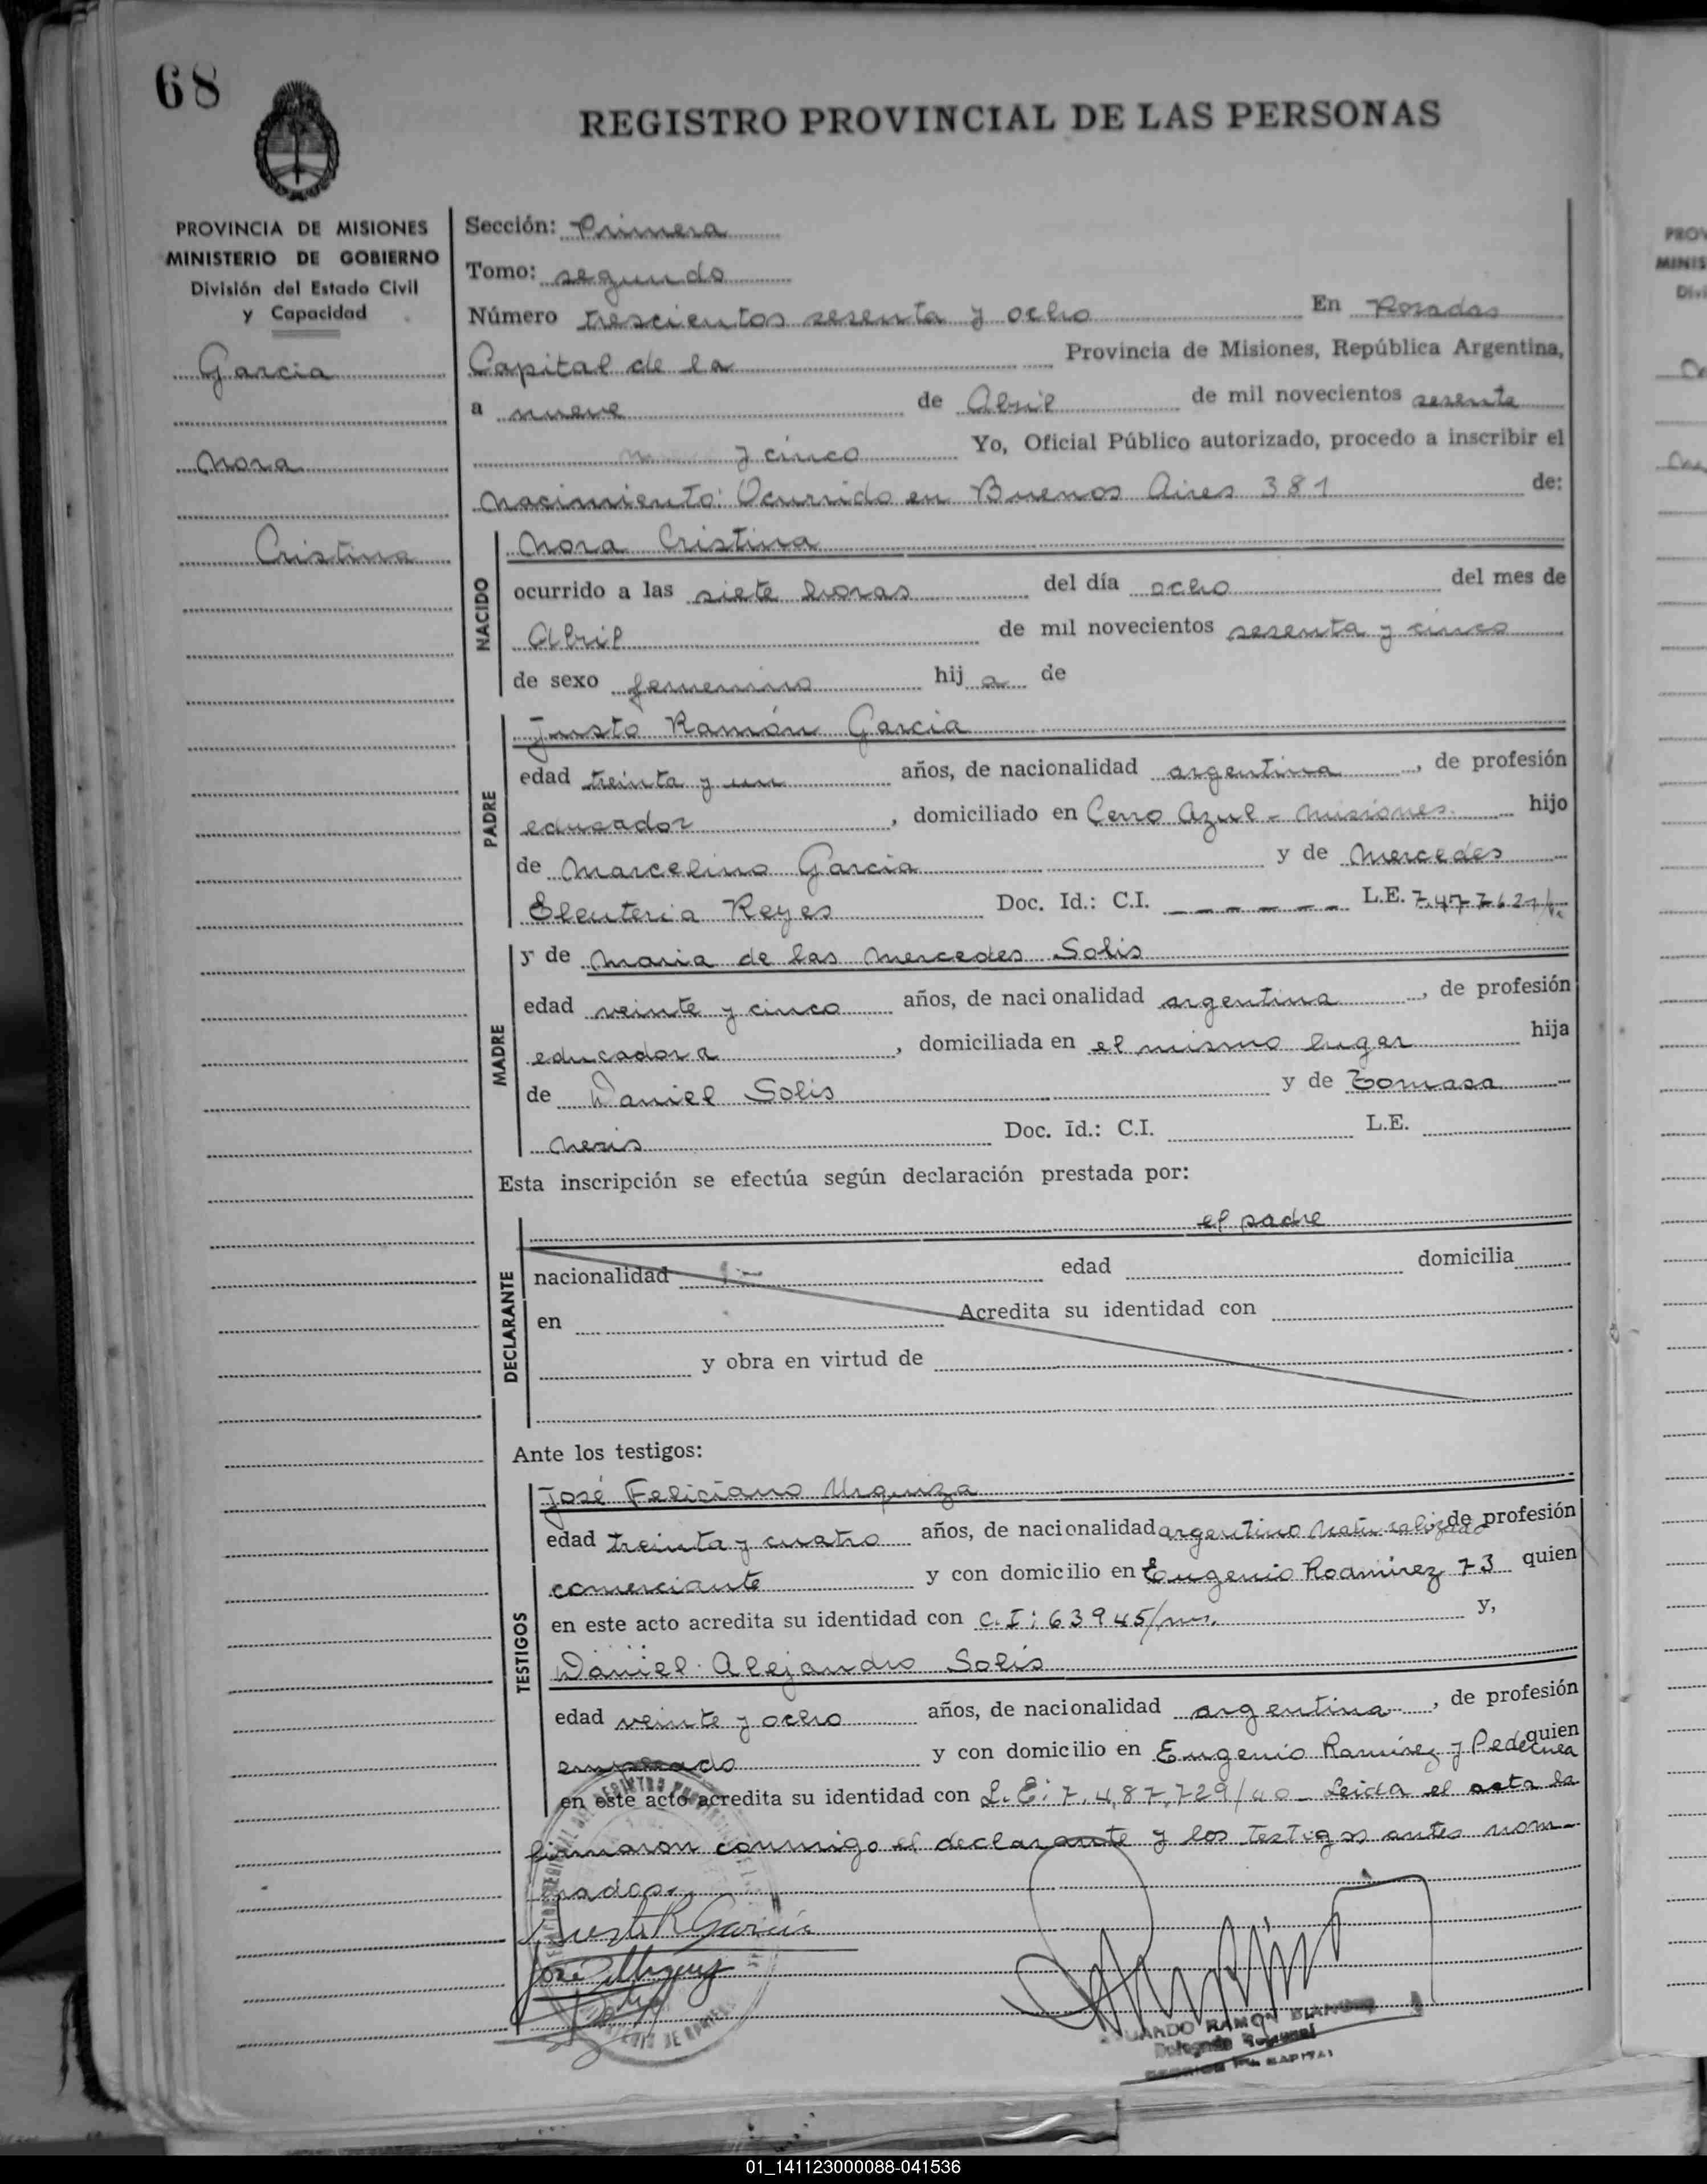 68
REGISTRO PROVINCIAL DE LAS PERSONAS
PROVINCIA DE MISIONES
MINISTERIO DE GOBIERNO
División del Estado Civil
y Capacidad
Garcia
Nora
Cristina
Sección: Primera
Tomo: segundo
Número trescientos sesenta y ocho En Posadas
Capital de la Provincia de Misiones, República Argentina,
a nueve de Abril de mil novecientos sesenta
y cinco Yo, Oficial Público autorizado, procedo a inscribir el
Nacimiento: Ocurrido en Buenos Aires 381 de:
NACIDO
Nora Cristina
ocurrido a las siete horas del día ocho del mes de
Abril de mil novecientos sesenta y cinco
de sexo femenino hij a de
PADRE
Justo Ramón Garcia
edad treinta y un años, de nacionalidad argentina, de profesión
educador, domiciliado en Cerro Azul - Misiones. hijo
de Marcelino Garcia y de Mercedes
Eleuteria Reyes Doc. Id.: C.I. ------ L.E. 7.477.621
MADRE
y de Maria de las Mercedes Solis
edad veinte y cinco años, de nacionalidad argentina, de profesión
educadora, domiciliada en el mismo lugar hija
de Daniel Solis y de Tomasa
Neris Doc. Id.: C.I. L.E.
Esta inscripción se efectúa según declaración prestada por:
DECLARANTE
el padre
nacionalidad edad domicilia
en Acredita su identidad con
y obra en virtud de
Ante los testigos:
TESTIGOS
José Feliciano Urquiza
edad treinta y cuatro años, de nacionalidad argentino naturalizado de profesión
comerciante y con domicilio en Eugenio Ramirez 73 quien
en este acto acredita su identidad con C.I: 63945/ms. y,
Daniel Alejandro Solis
edad veinte y ocho años, de nacionalidad argentina, de profesión
empleado y con domicilio en Eugenio Ramirez y Pedernea quien
en este acto acredita su identidad con L.E: 7.487.729/40_ Leida el acta la
firmaron conmigo el declarante y los testigos antes nom-
brados.
Justo R Garcia
José Urquiza
RAMON
Delegado Regional
CAPITAL
01_141123000088-041536